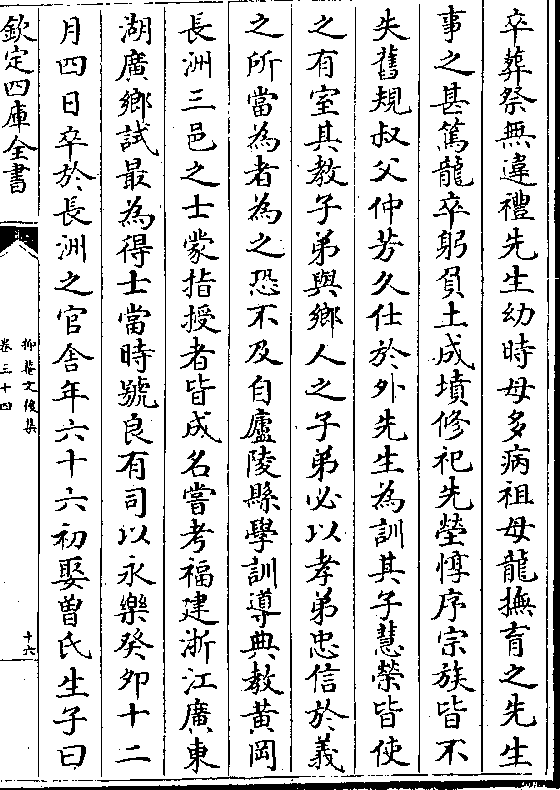 卒葬祭無違禮先生幼時母多病祖母龍撫育之先生
事之甚篤龍卒躬負土成墳修祀先塋惇序宗族皆不
失舊規叔父仲芳久仕於外先生為訓其子慧榮皆使
之有室其教子弟與鄉人之子弟必以孝弟忠信於義
之所當為者為之恐不及自廬陵縣學訓導典教黃岡
長洲三邑之士蒙指授者皆成名嘗考福建浙江廣東
湖廣鄉試最為得士當時號良有司以永樂癸卯十二
月四日卒於長洲之官舎年六十六初娶曽氏生子曰
欽定四庫全書
抑菴文後集
卷三十四
十六